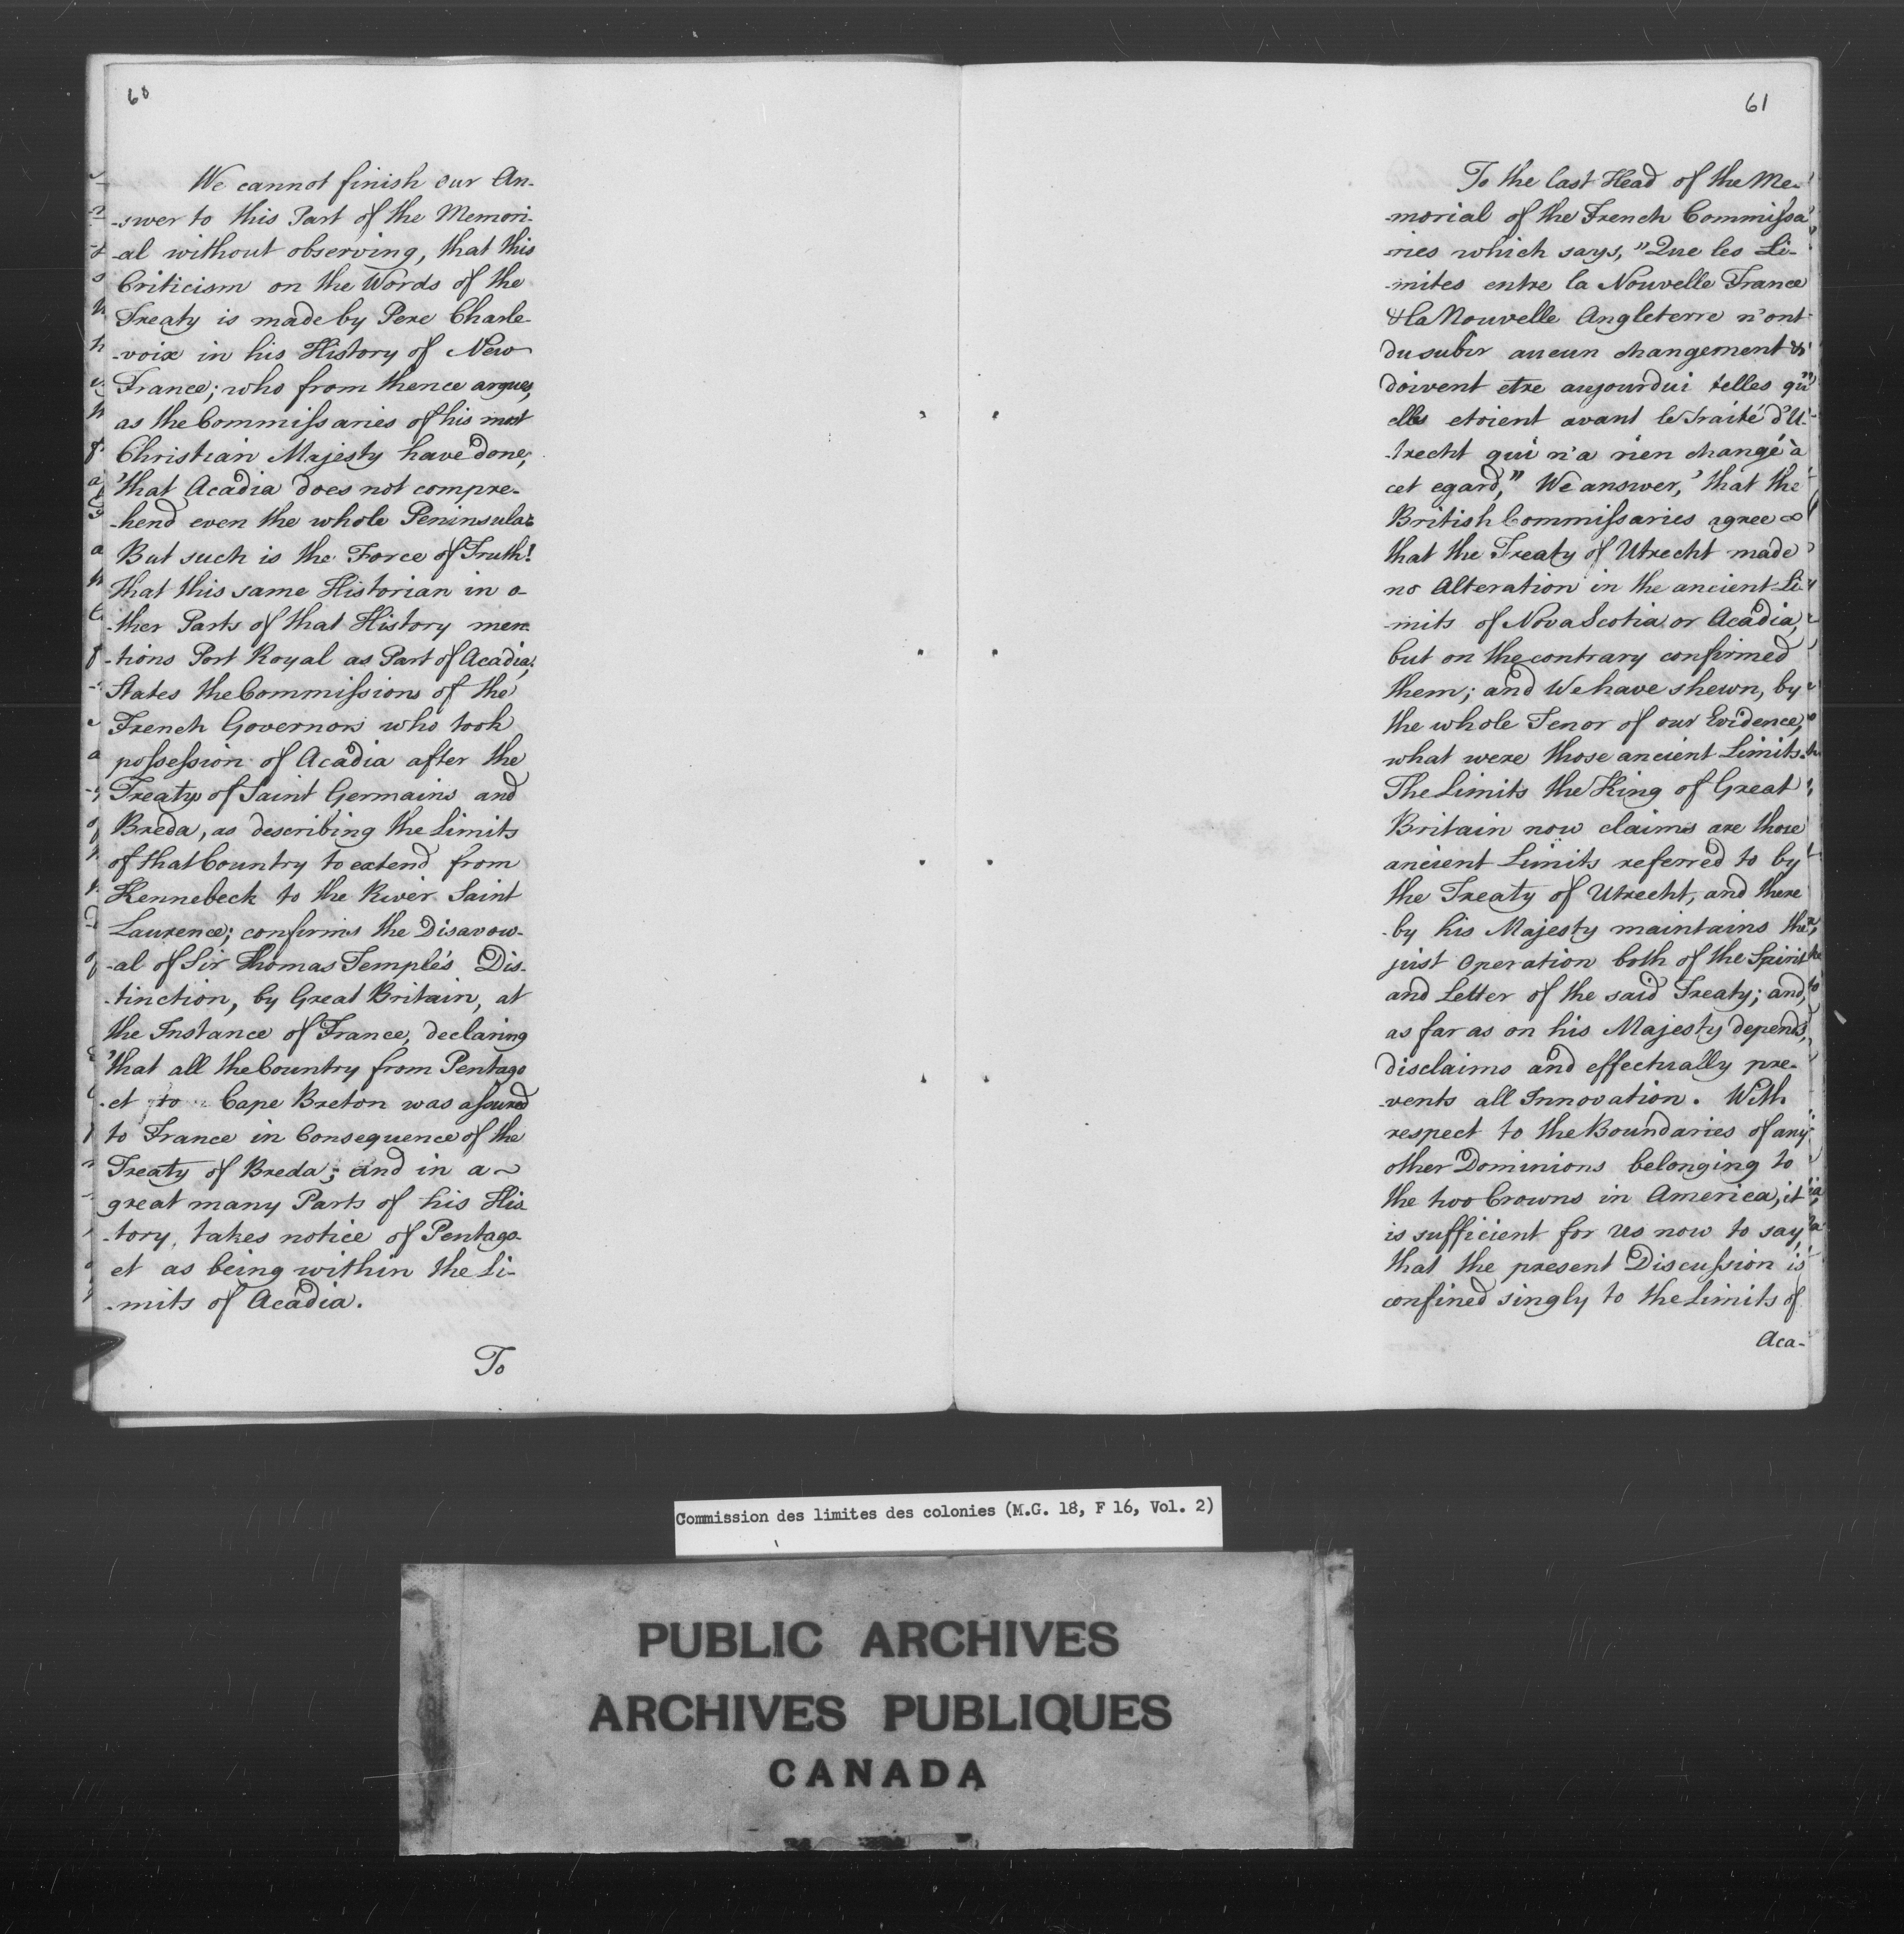 60
We cannot finish our An-
-swer to this Part of the Memori-
-al without observing, that this
Criticism on the Words of the
Treaty is made by Pere Charle-
-voix in his History of New
France; who from thence argues,
as the Commissaries of his most
Christian Majesty have done,
that Acadia does not compre-
-hend even the whole Peninsula:
But such is the Force of Truth!
that this same Historian in o-
-ther Parts of that History men-
-tions Port Royal as Part of Acadia;
States the Commissions of the
French Governors who took
possession of Acadia after the
Treatys of Saint Germains and
Breda, as describing the Limits
of that Country to extend from
Kennebeck to the River Saint
Laurence; confirms the Disavow-
-al of Sir Thomas Temple's Dis-
-tinction, by Great Britain, at
the Instance of France, declaring
that all the Country from Pentago
-et to Cape Breton was assured
to France in Consequence of the
Treaty of Breda; and in a
great many Parts of his His
-tory, takes notice of Pentago-
et as being within the Li-
-mits of Acadia.
To
61
To the last Head of the Me-
-morial of the French Commissa
-ries which says, "Que les Li-
-mites entre la Nouvelle France
& la Nouvelle Angleterre n'ont
du subir aucun changement &
doivent etre aujourdui telles qu'
elles etoient avant le Traité d'U-
-trecht qui n'a rien changé à
cet egard," We answer, that the
British Commissaries agree
that the Treaty of Utrecht made
no Alteration in the ancient Li-
-mits of Nova Scotia or Acadia,
but on the contrary confirmed
them; and We have shewn, by
the whole Tenor of our Evidence,
what were those ancient Limits.
The Limits the King of Great
Britain now claims are those
ancient Limits referred to by
the Treaty of Utrecht, and there
-by his Majesty maintains the
just Operation both of the Spirit
and Letter of the said Treaty; and,
as far as on his Majesty depends,
disclaims and effectually pre-
-vents all Innovation. With
respect to the Boundaries of any
other Dominions belonging to
the two Crowns in America, it
is sufficient for us now to say,
that the present Discussion is
confined singly to the Limits of
Aca-
Commission des limites des colonies (M.G. 18, F 16, Vol. 2)
PUBLIC ARCHIVES
ARCHIVES PUBLIQUES
CANADA